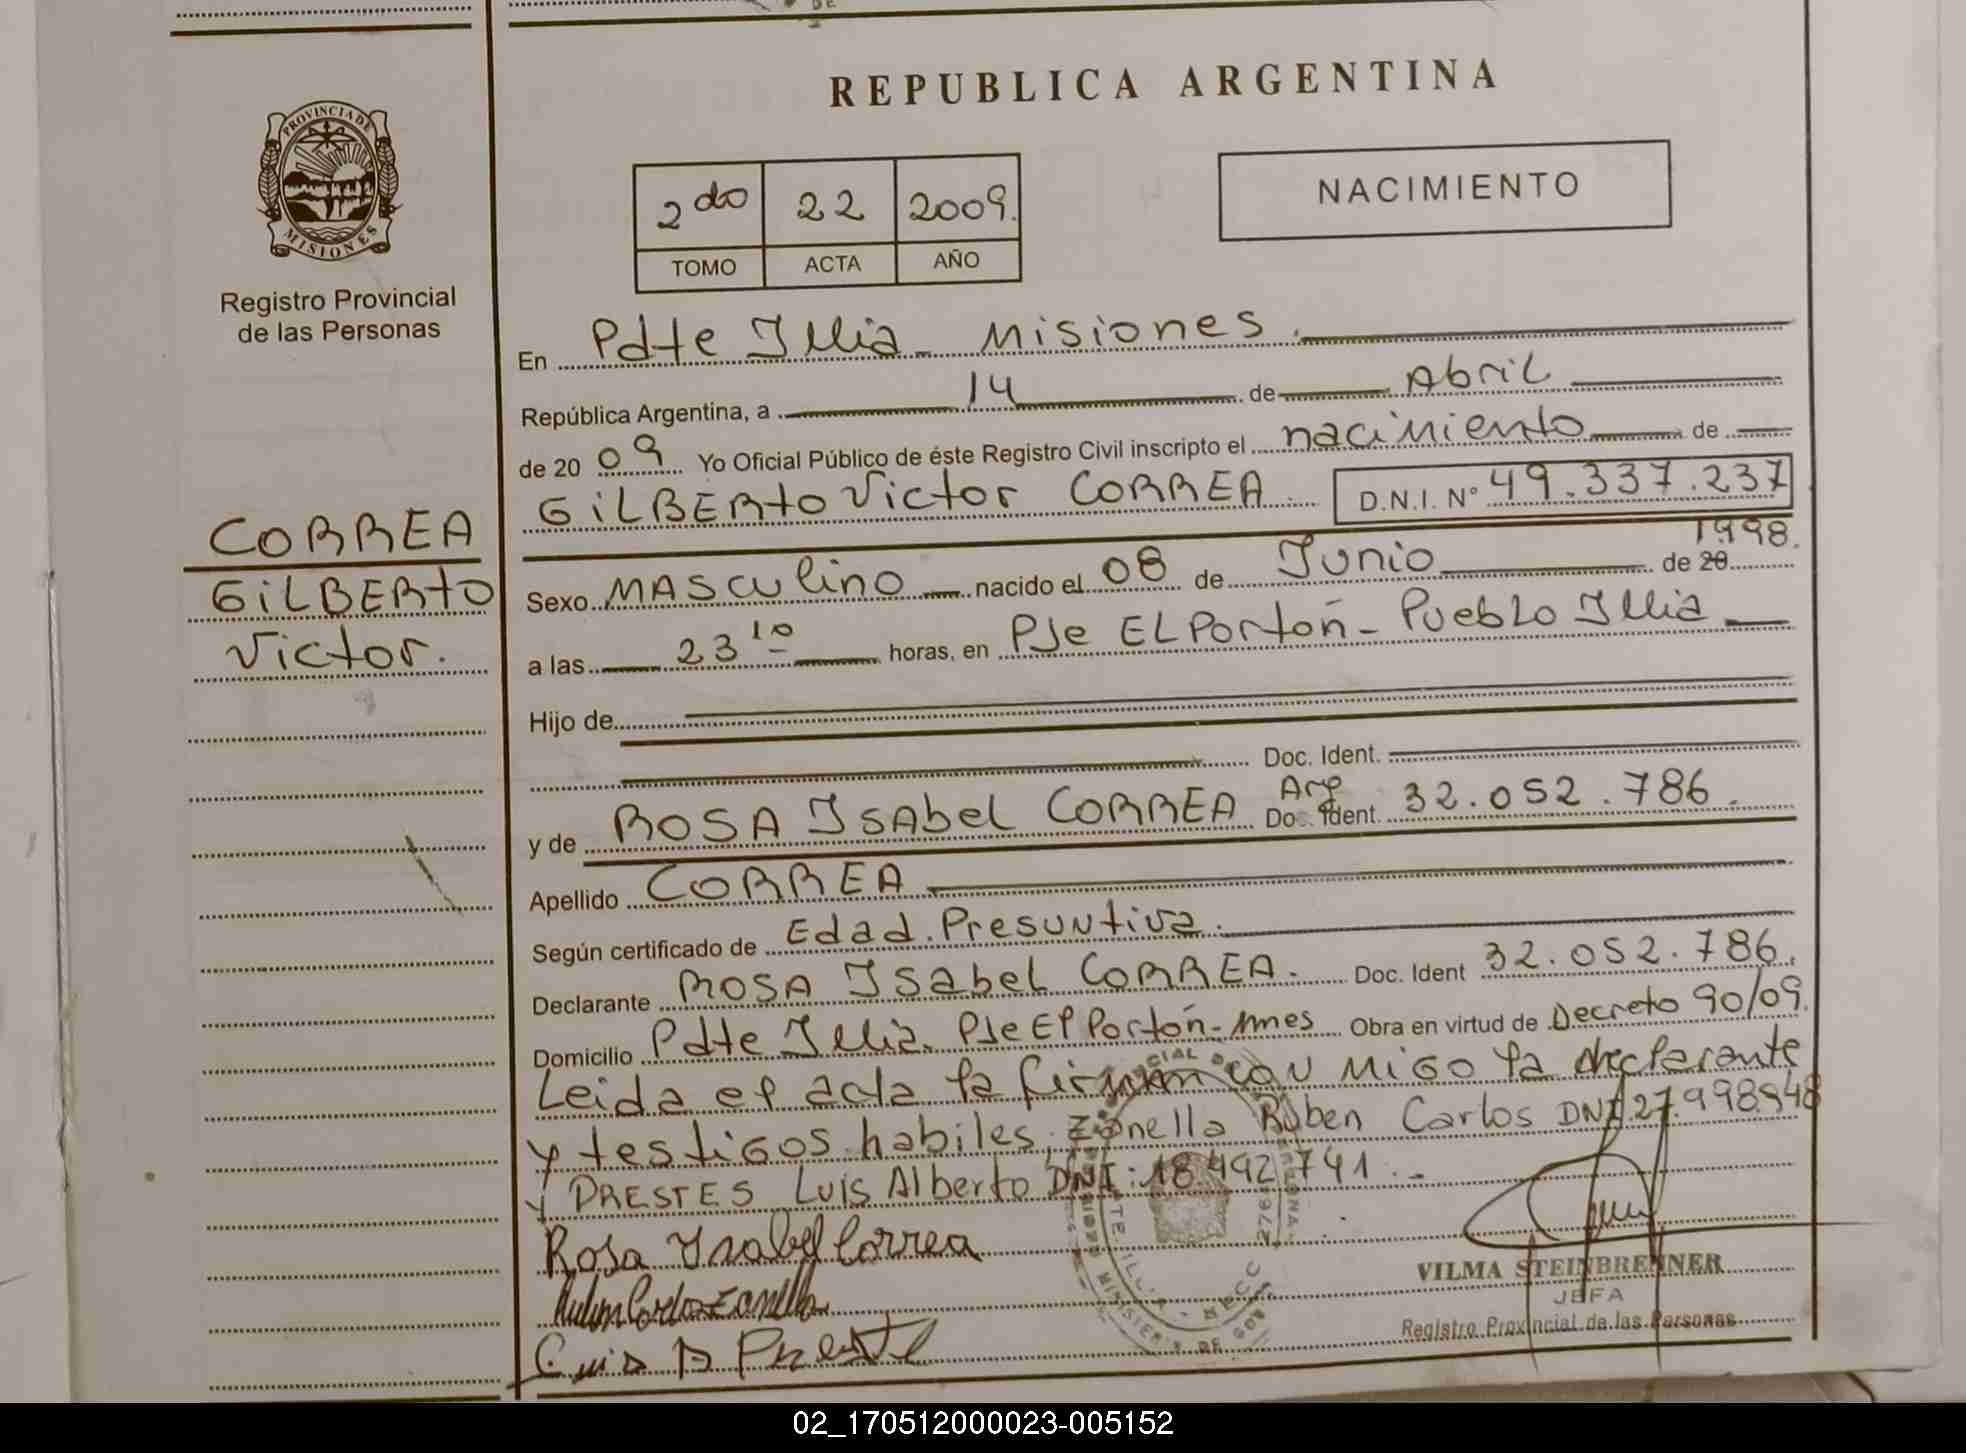 REPUBLICA ARGENTINA
PROVINCIA DE
MISIONES
Registro Provincial
de las Personas
2do 22 2009.
TOMO ACTA AÑO
NACIMIENTO
CORREA
GILBERTO
Victor.
En Pdte Illia - Misiones.
República Argentina, a 14 de Abril
de 20 09 Yo Oficial Público de éste Registro Civil inscripto el nacimiento de
GILBERTO Victor CORREA. D.N.I. N° 49.337.237
Sexo MASCULINO nacido el 08 de Junio de 20 1998.
a las 23 10 horas, en PJe EL Portón - Pueblo Illia
Hijo de
Doc. Ident.
y de ROSA ISAbel CORREA Arg Doc. Ident. 32.052.786.
Apellido CORREA
Según certificado de Edad Presuntiva.
Declarante ROSA ISabel CORREA. Doc. Ident 32.052.786.
Domicilio Pdte Illia. PJe El Portón - Mnes Obra en virtud de Decreto 90/09.
Leida el acta la firman con migo la declarante
y testigos habiles, Zanella Ruben Carlos DNI 27.998.948
y PRESTES Luis Alberto DNI: 18 492 741.-
Rosa Ysabel Correa
Ruben Carlos Zanella
Luis A Preste
VILMA STEINBRENNER
JEFA
Registro Provincial de las Personas
02_170512000023-005152